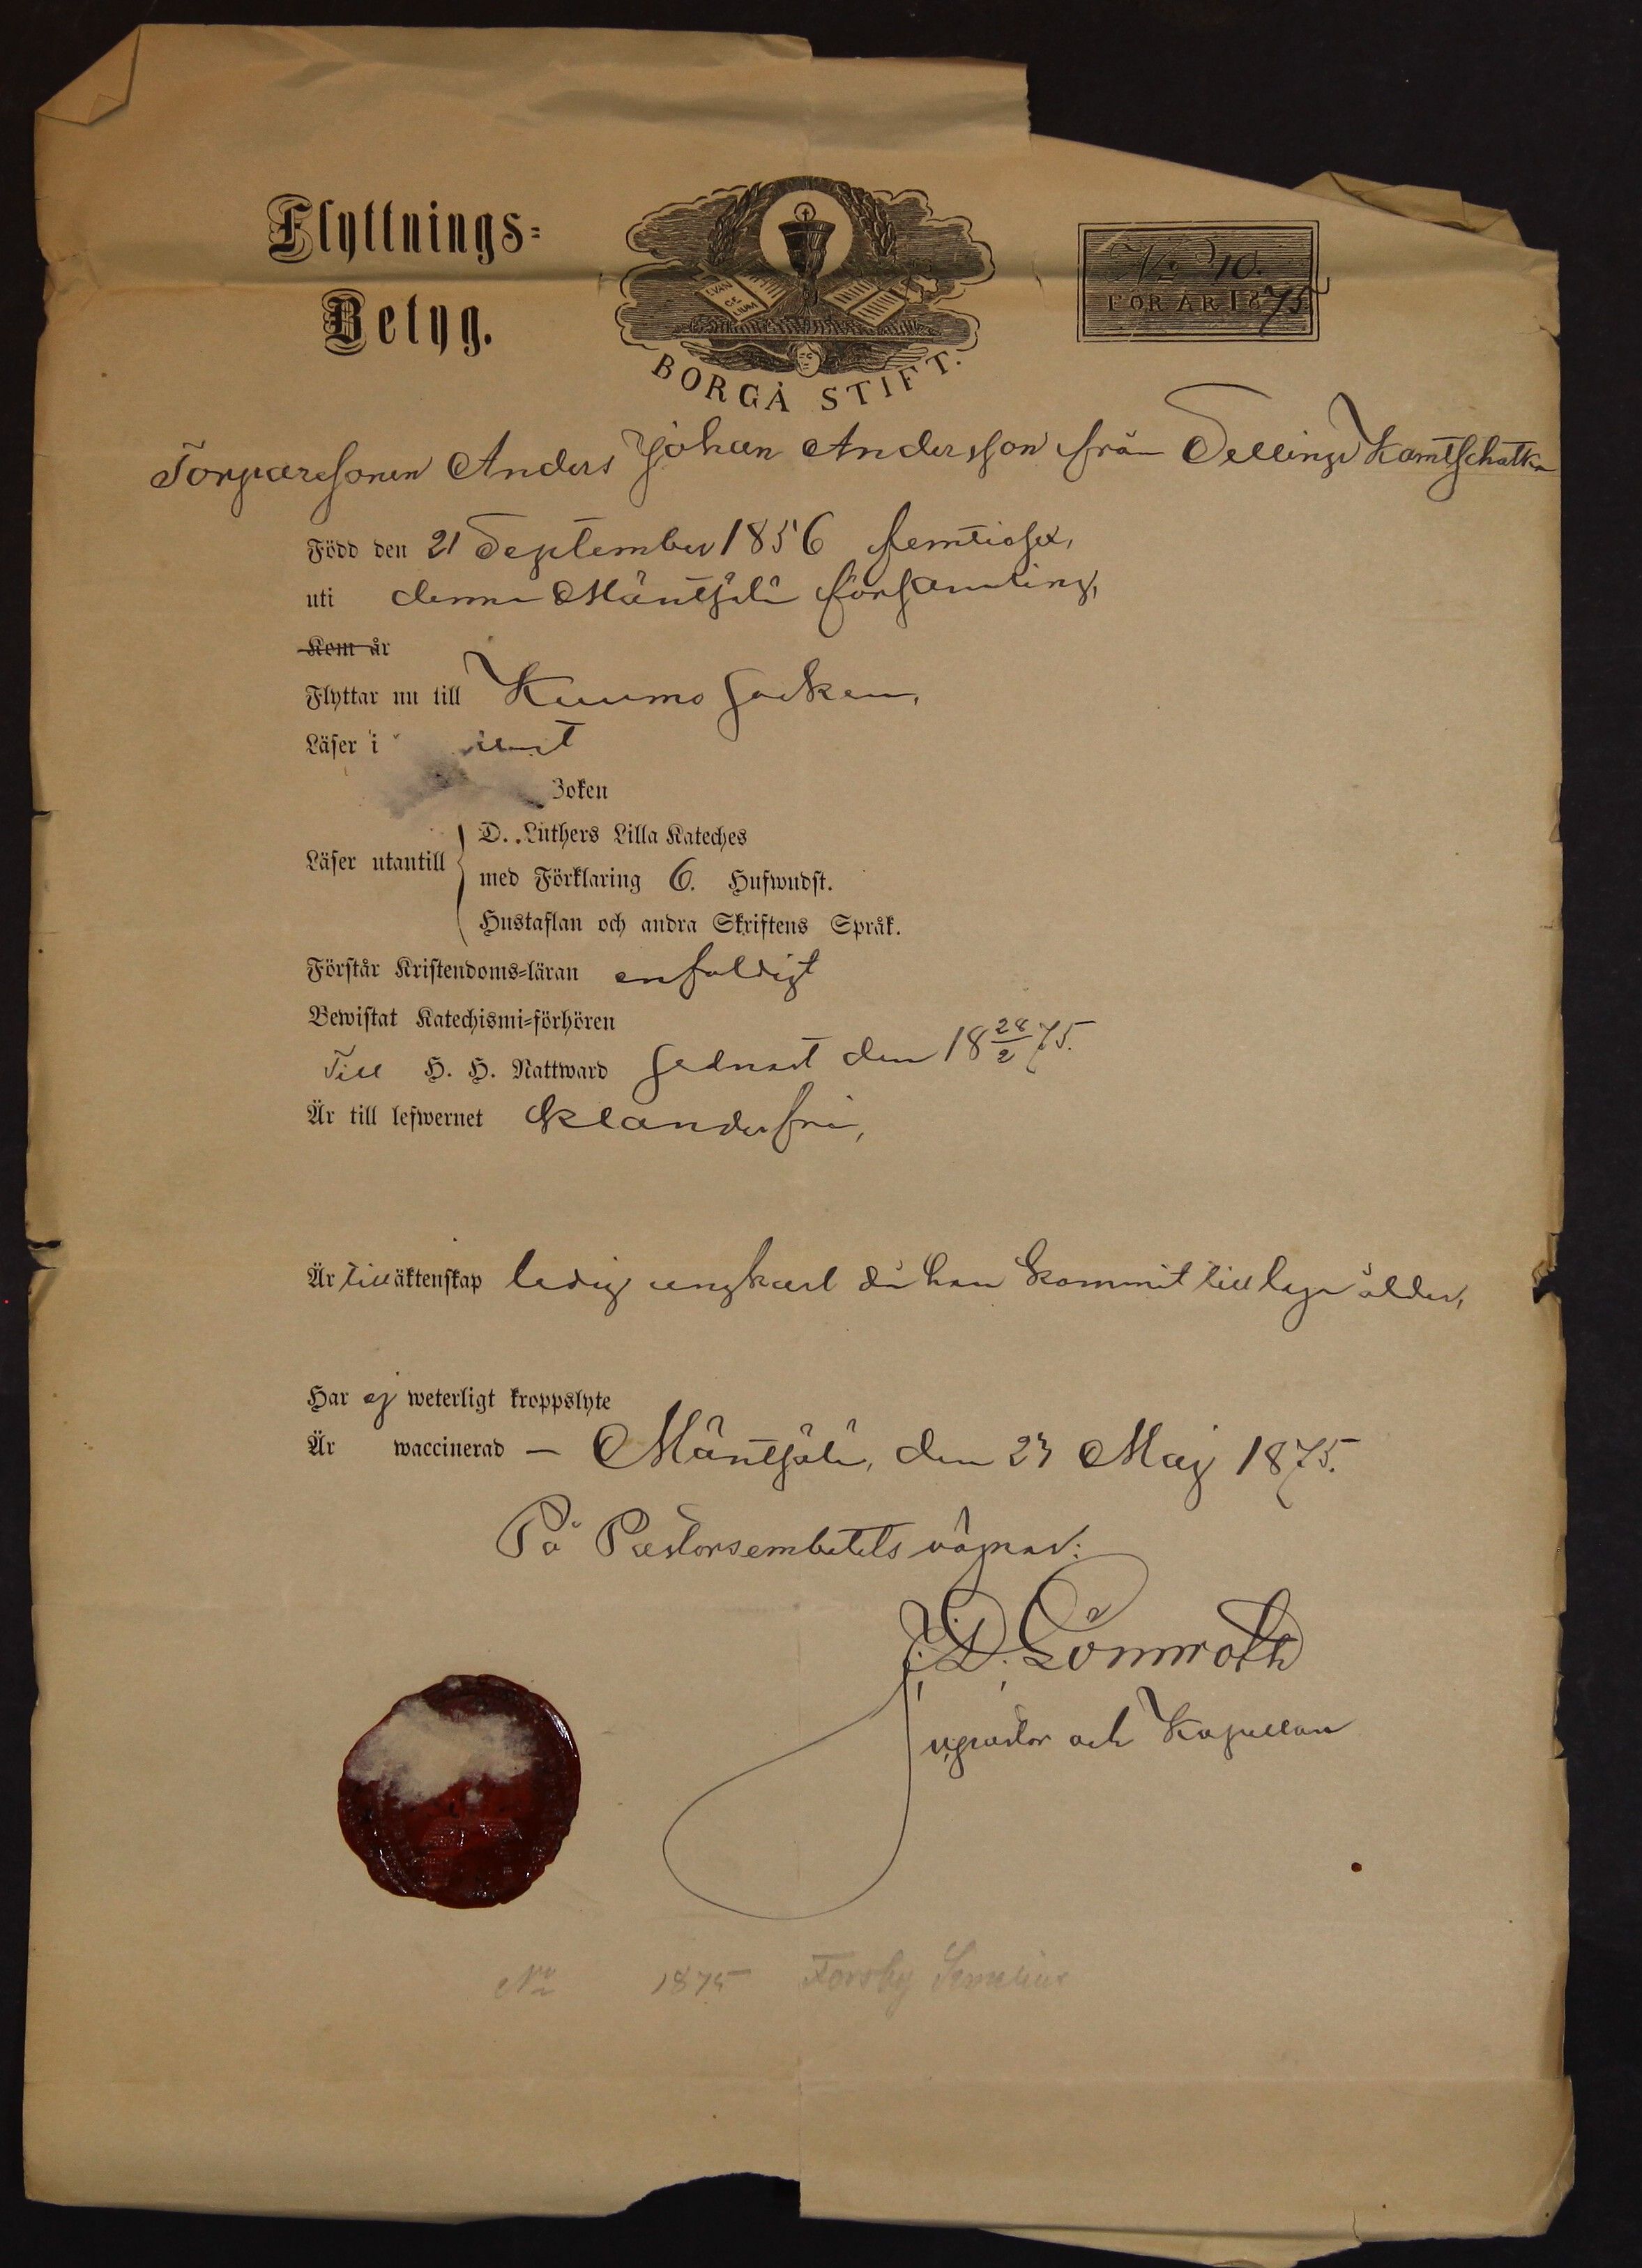 Flyttnings-
Betyg.
EVAN
GE
LIUM
BORGÅ STIFT.
No 10.
FÖR ÅR 1875.
Torparesonen Anders Johan Andersson från Sellinge Kamtschatka
Född den 21 September 1856 femtiosex,
uti denna Mäntsälä församling,
Kem år
Flyttar nu till Kuumo socken,
Läser i
Boken
Läser utantill
D. Luthers Lilla Kateches
med Förklaring 6. Hufwudst.
Hustaflan och andra Skriftens Språk.
Förstår Kristendoms-läran enfaldigt
Bewistat Katechismi-förhören
Till H. H. Nattward sednast den 18 28/2 75.
Är till lefwernet klanderfri,
Är till äktenskap ledig ungkarl då han kommit till laga ålder,
Har ej weterligt kroppslyte
Är waccinerad — Mäntsälä, den 23 Maj 1875.
På Pastorsembetets vägnar:
J. D. Lönnroth
v. pastor och Kapellan
No 1875 Forsby